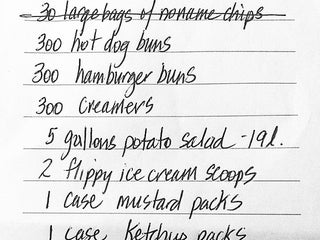 30 large bags of noname chips
300 hot dog buns
300 hamburger buns
300 creamers
5 gallons potato salad -19l.
2 flippy ice cream scoops
1 case mustard packs
1 case ketchup packs